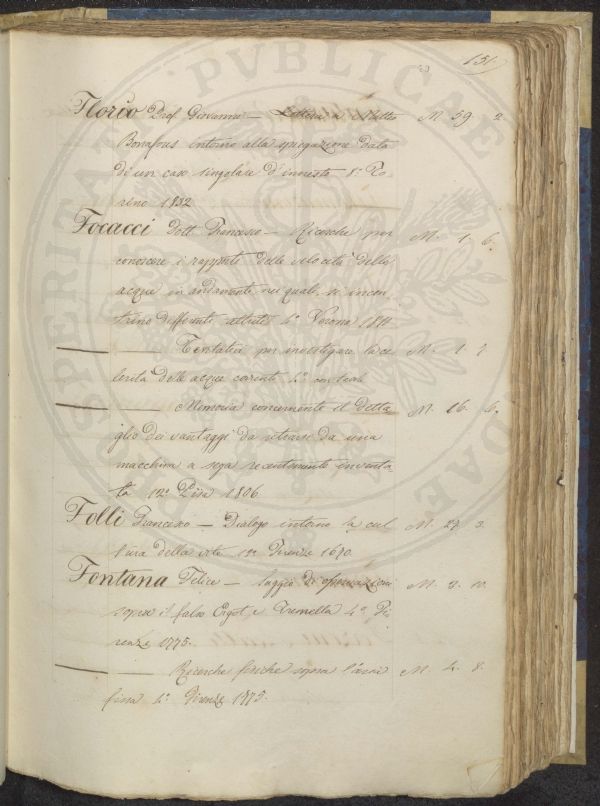 131
Florio Prof. Giovanni — Lettera a Matteo M. 59. 2.
Bonafous intorno alla spiegazione data
di un caso singolare d'innesto 8º To-
rino 1832
Focacci Dott. Francesco — Ricerche per M. 1. 6.
conoscere i rapporti delle velocità delle
acque in andamento nei quali si incon-
trino differenti altezze 4º Verona 18
— — Tentativi per investigare la ce M. 1. 7
lerità delle acque correnti 4º con tavole
— — Memoria concernente il detta M. 16. 6.
glio dei vantaggi da ritrarsi da una
macchina a sega recentemente inventa
ta 12º Pisa 1806
Folli Francesco — Dialogo intorno la cul M. 27. 3.
tura della vite 12º Firenze 1670.
Fontana Felice — Saggio di osservazioni M. 3. 10.
sopra il falso Ergot, e Tremella 4º Fi
renze 1775.
— — Ricerche fisiche sopra l'aria M. 4. 8.
fissa 4º Firenze 1775.
PROSPERITATI PVBLICAE